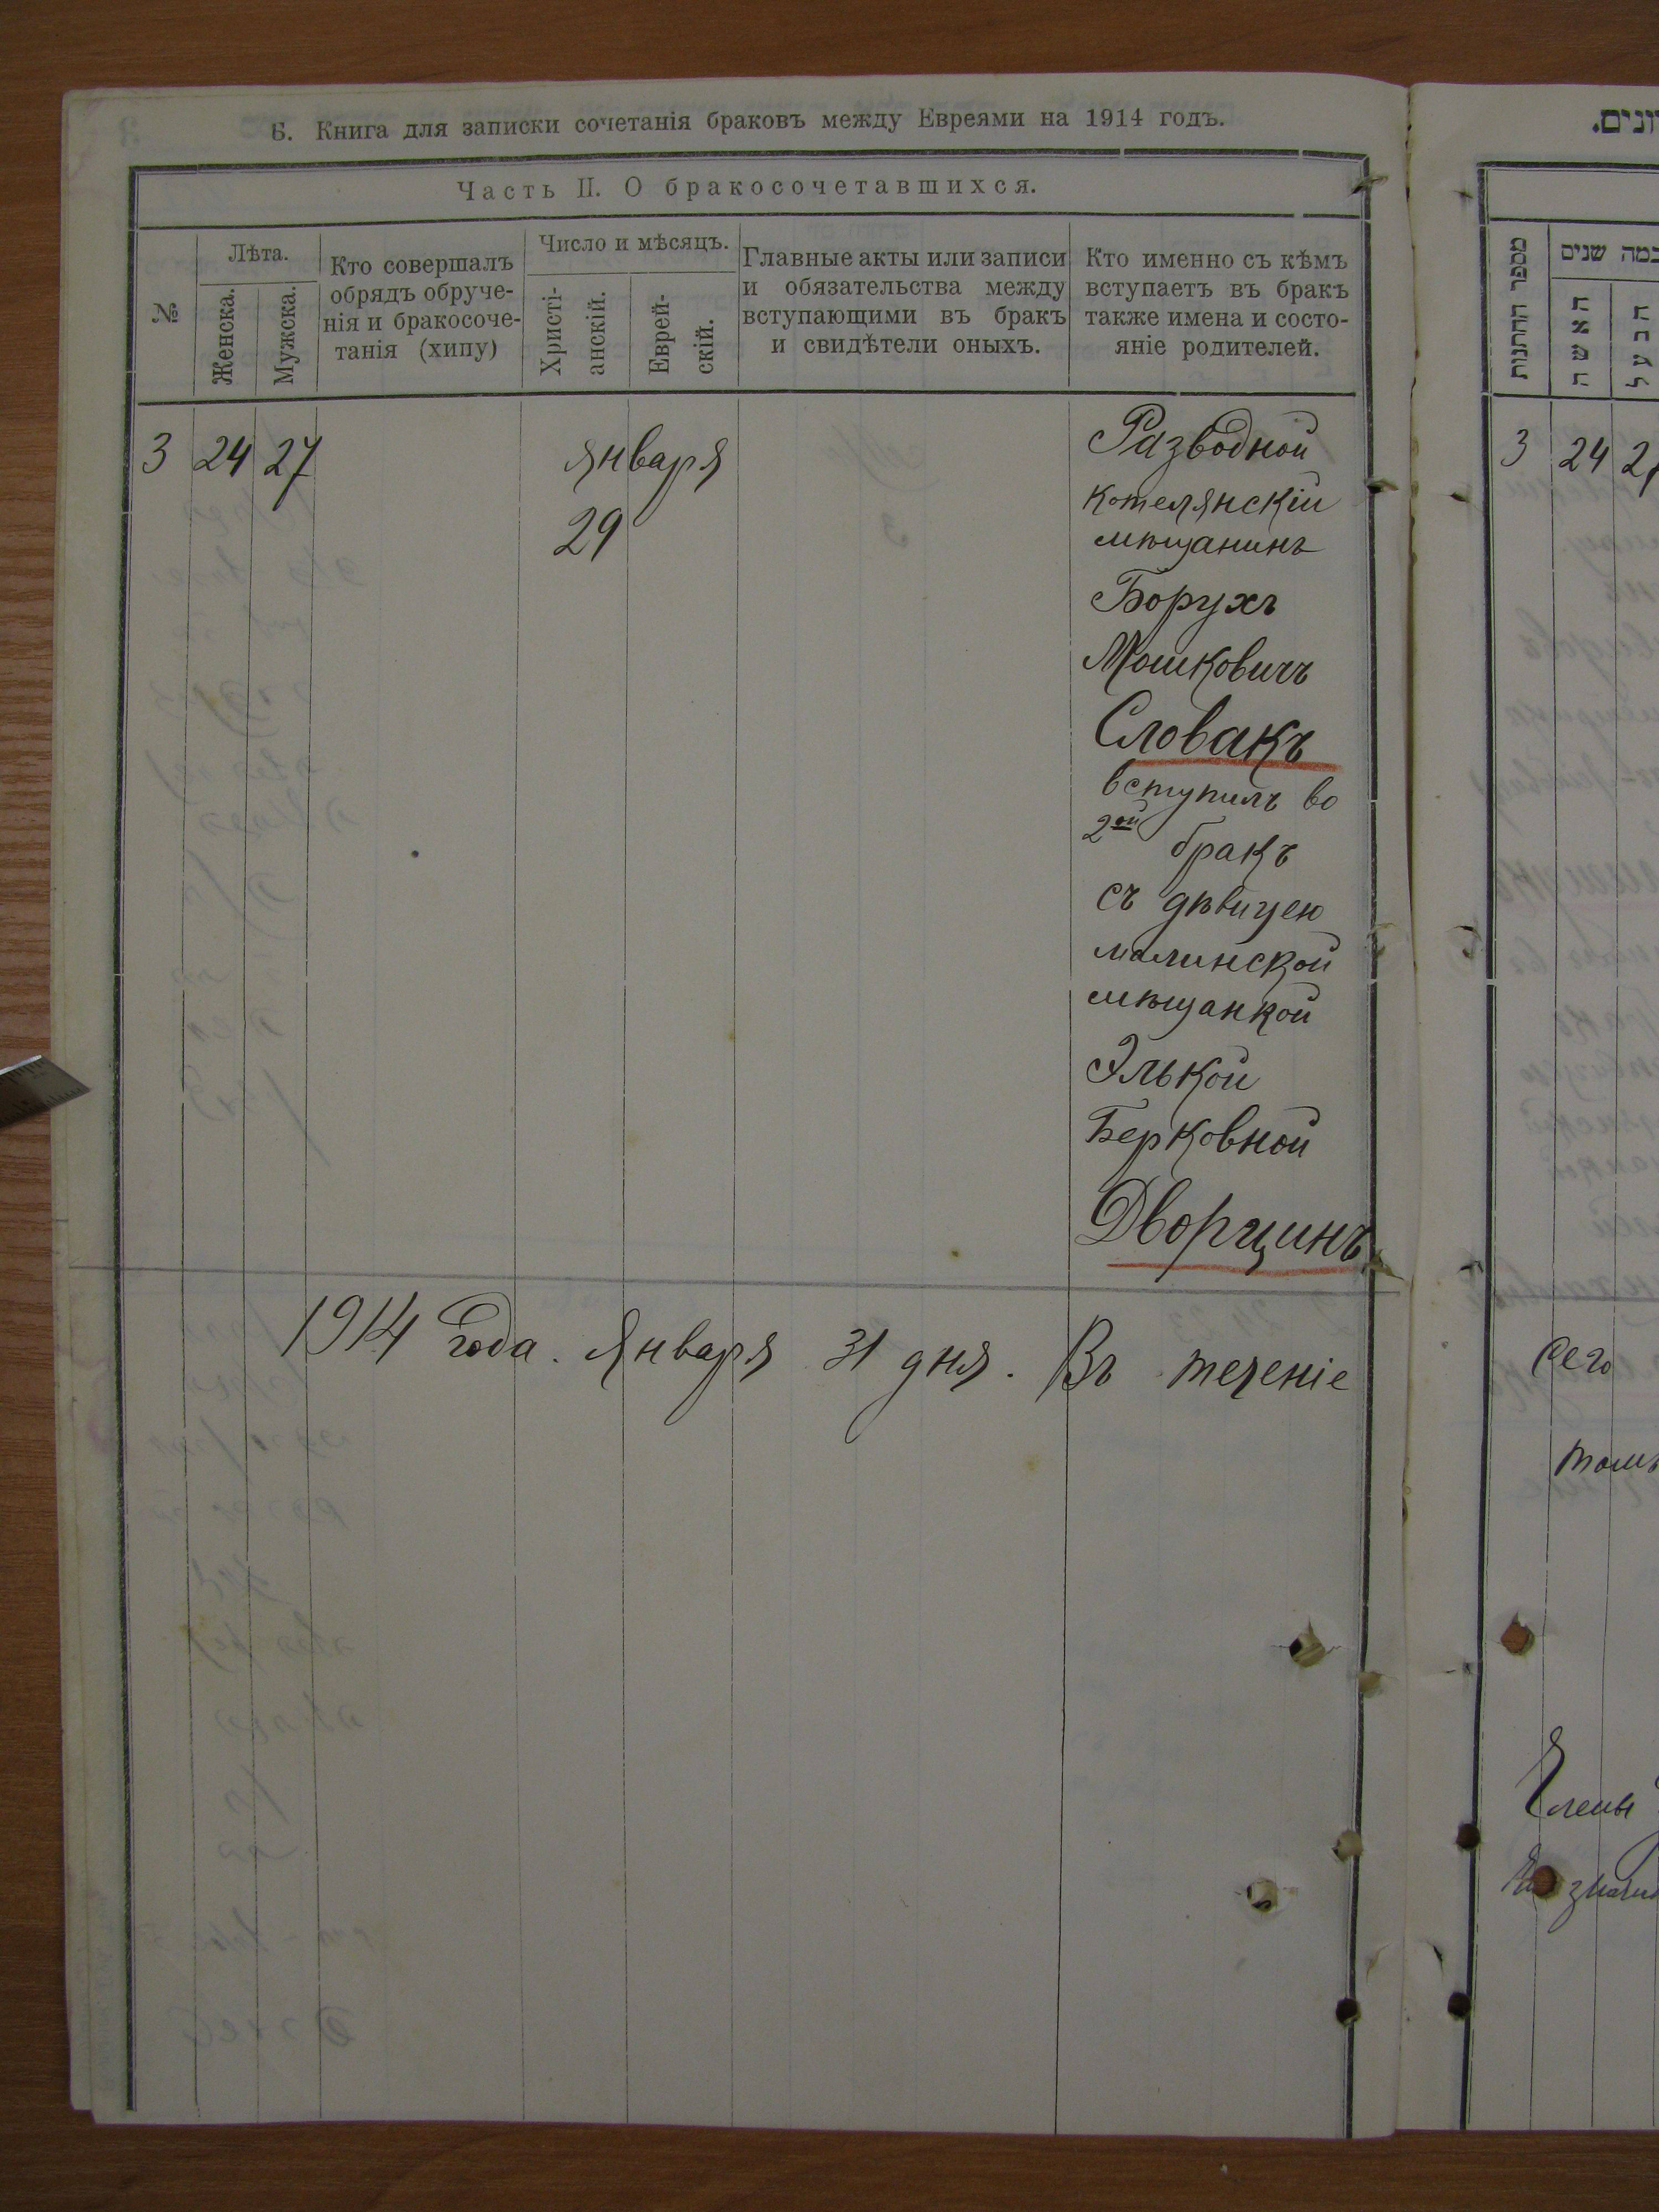 Б. Книга для записки сочетанія браковъ между Евреями на 1914 годъ.
Часть II. О бракосочетавшихся.
№
Лѣта.
Женска.
Мужска.
Кто совершалъ
обрядъ обруче-
нія и бракосоче-
танія (хипу)
Число и мѣсяцъ.
Христі-
анскій.
Еврей-
скій.
Главные акты или записи
и обязательства между
вступающими въ бракъ
и свидѣтели оныхъ.
Кто именно съ кѣмъ
вступаетъ въ бракъ
также имена и состо-
яніе родителей.
3 24 27
января
29
Разводной
котелянскій
мѣщанинъ
Борухъ
Мошковичъ
Словакъ
вступилъ во
2ой бракъ
съ дѣвицею
малинской
мѣщанкой
Элькой
Берковной
Дворцинъ
1914 года. Января 31 дня. Въ теченіе
מספר החתונות
כמה שנים
האשה
הבעל
3 24
сего